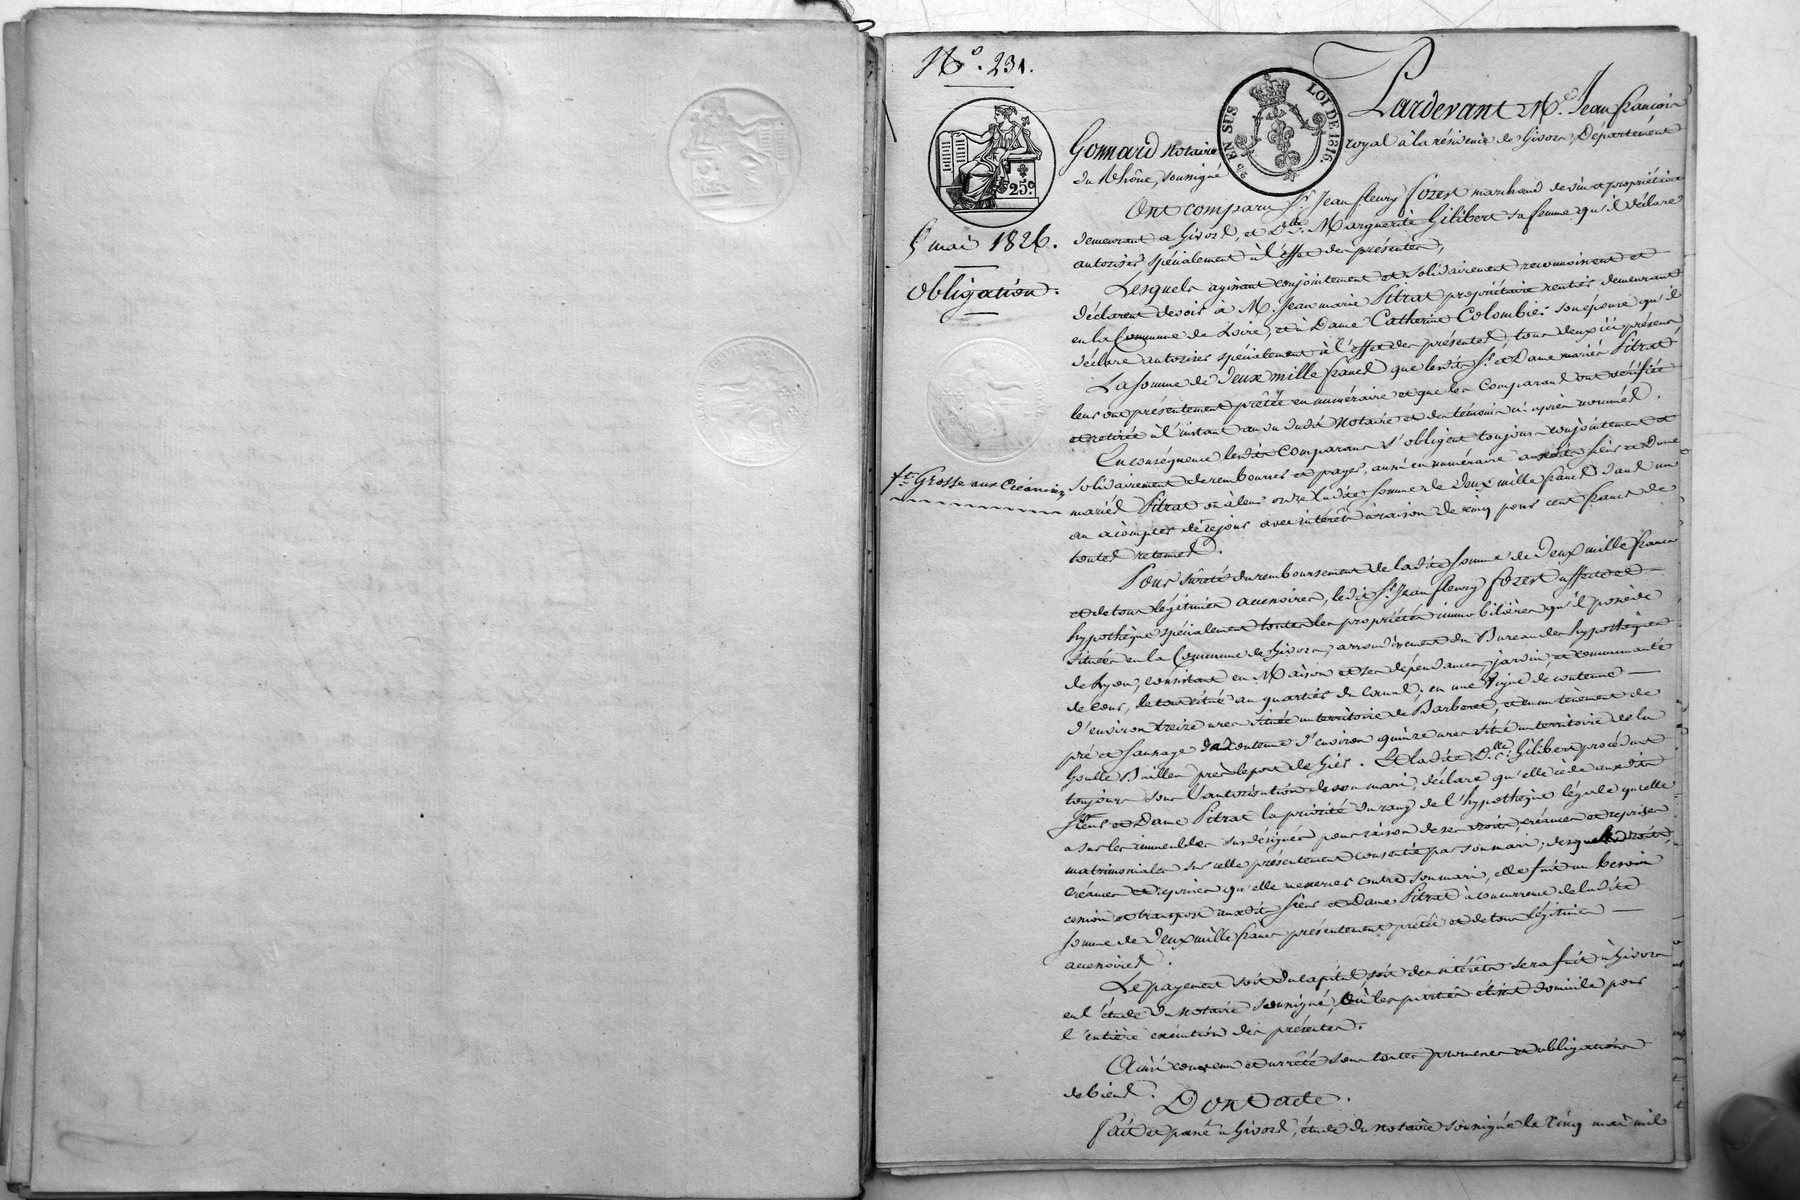 N.º 231.
EN SUS
LOI DE 1816.
25.c
5 mai 1826.
Obligation.
f.te Grosse aux Créanciers
Pardevant M.e Jean françois
Gonnard notaire royal à la résidence de Givors, Département
du Rhône, soussigné
Ont comparu S.r Jean fleury forest marchand de vin et propriétaire
demeurant à Givors, et D.lle Marguerite Gilibert sa femme qu'il déclare
autoriser spécialement à l'effet des présentes,
Lesquels agissant conjointement et solidairement reconnoissent et
déclarent devoir à M. Jean marie Pitrat propriétaire rentier demeurant
en la Commune de Loire, et à Dame Catherine Colombier son épouse qu'il
déclare autoriser spécialement à l'effet des présentes, tous deux ici présens,
La somme de deux mille francs que lesdits S.r et Dame mariés Pitrat
leur ont présentement prêtée en numéraire et que les Comparans ont vérifiée
et retirée à l'instant au vu dudit Notaire et des témoins ci après nommés.
En conséquence lesdits Comparans s'obligent toujours conjointement et
solidairement de rembourser et payer, aussi en numéraire auxdits sieur et Dame
mariés Pitrat ou à leur ordre ladite somme de deux mille francs dans un
an à compter de ce jour avec intérêts à raison de cinq pour cent francs de
toutes retenues.
Pour sûreté du remboursement de ladite somme de deux mille francs
et de tous légitimes accessoires, ledit S.r Jean fleury forest affecte et
hypothèque spécialement toutes les propriétés immobilières qu'il possède
situées en la Commune de Givors, arrondissement du Bureau des hypothèques
de Lyon, consistant en Maison et ses dépendances, jardin, et communauté
de cour, le tout situé au quartier du Canal; en une Vigne de contenue
d'environ treize ares située au territoire de Barberet, et en un tènement de
pré et saussage de contenue d'environ quinze ares situé au territoire de la
Goutte Baillon près le pont de Gier. Et ladite D.lle Gilibert procédant
toujours sous l'autorisation de son mari, déclare qu'elle cède auxdits
sieur et Dame Pitrat la priorité du rang de l'hypothèque légale qu'elle
a sur les immeubles sus désignés pour raison de ses droits, créances et reprises
matrimoniales sur celle présentement consentie par son mari; desquels droits,
créances et reprises qu'elle a exercer contre son mari, elle fait au besoin
cession et transport auxdits sieur et Dame Pitrat à concurrence de ladite
somme de deux mille francs présentement prêtée et de tous légitimes
accessoires.
Le payement soit du capital, soit des intérêts sera fait à Givors
en l'étude du notaire soussigné, où les parties élisent domicile pour
l'entière exécution des présentes.
Ainsi convenu et arrêté sous toutes promesses et obligations
de biens. Dont acte.
fait et passé à Givors, étude du notaire soussigné le cinq mai mil